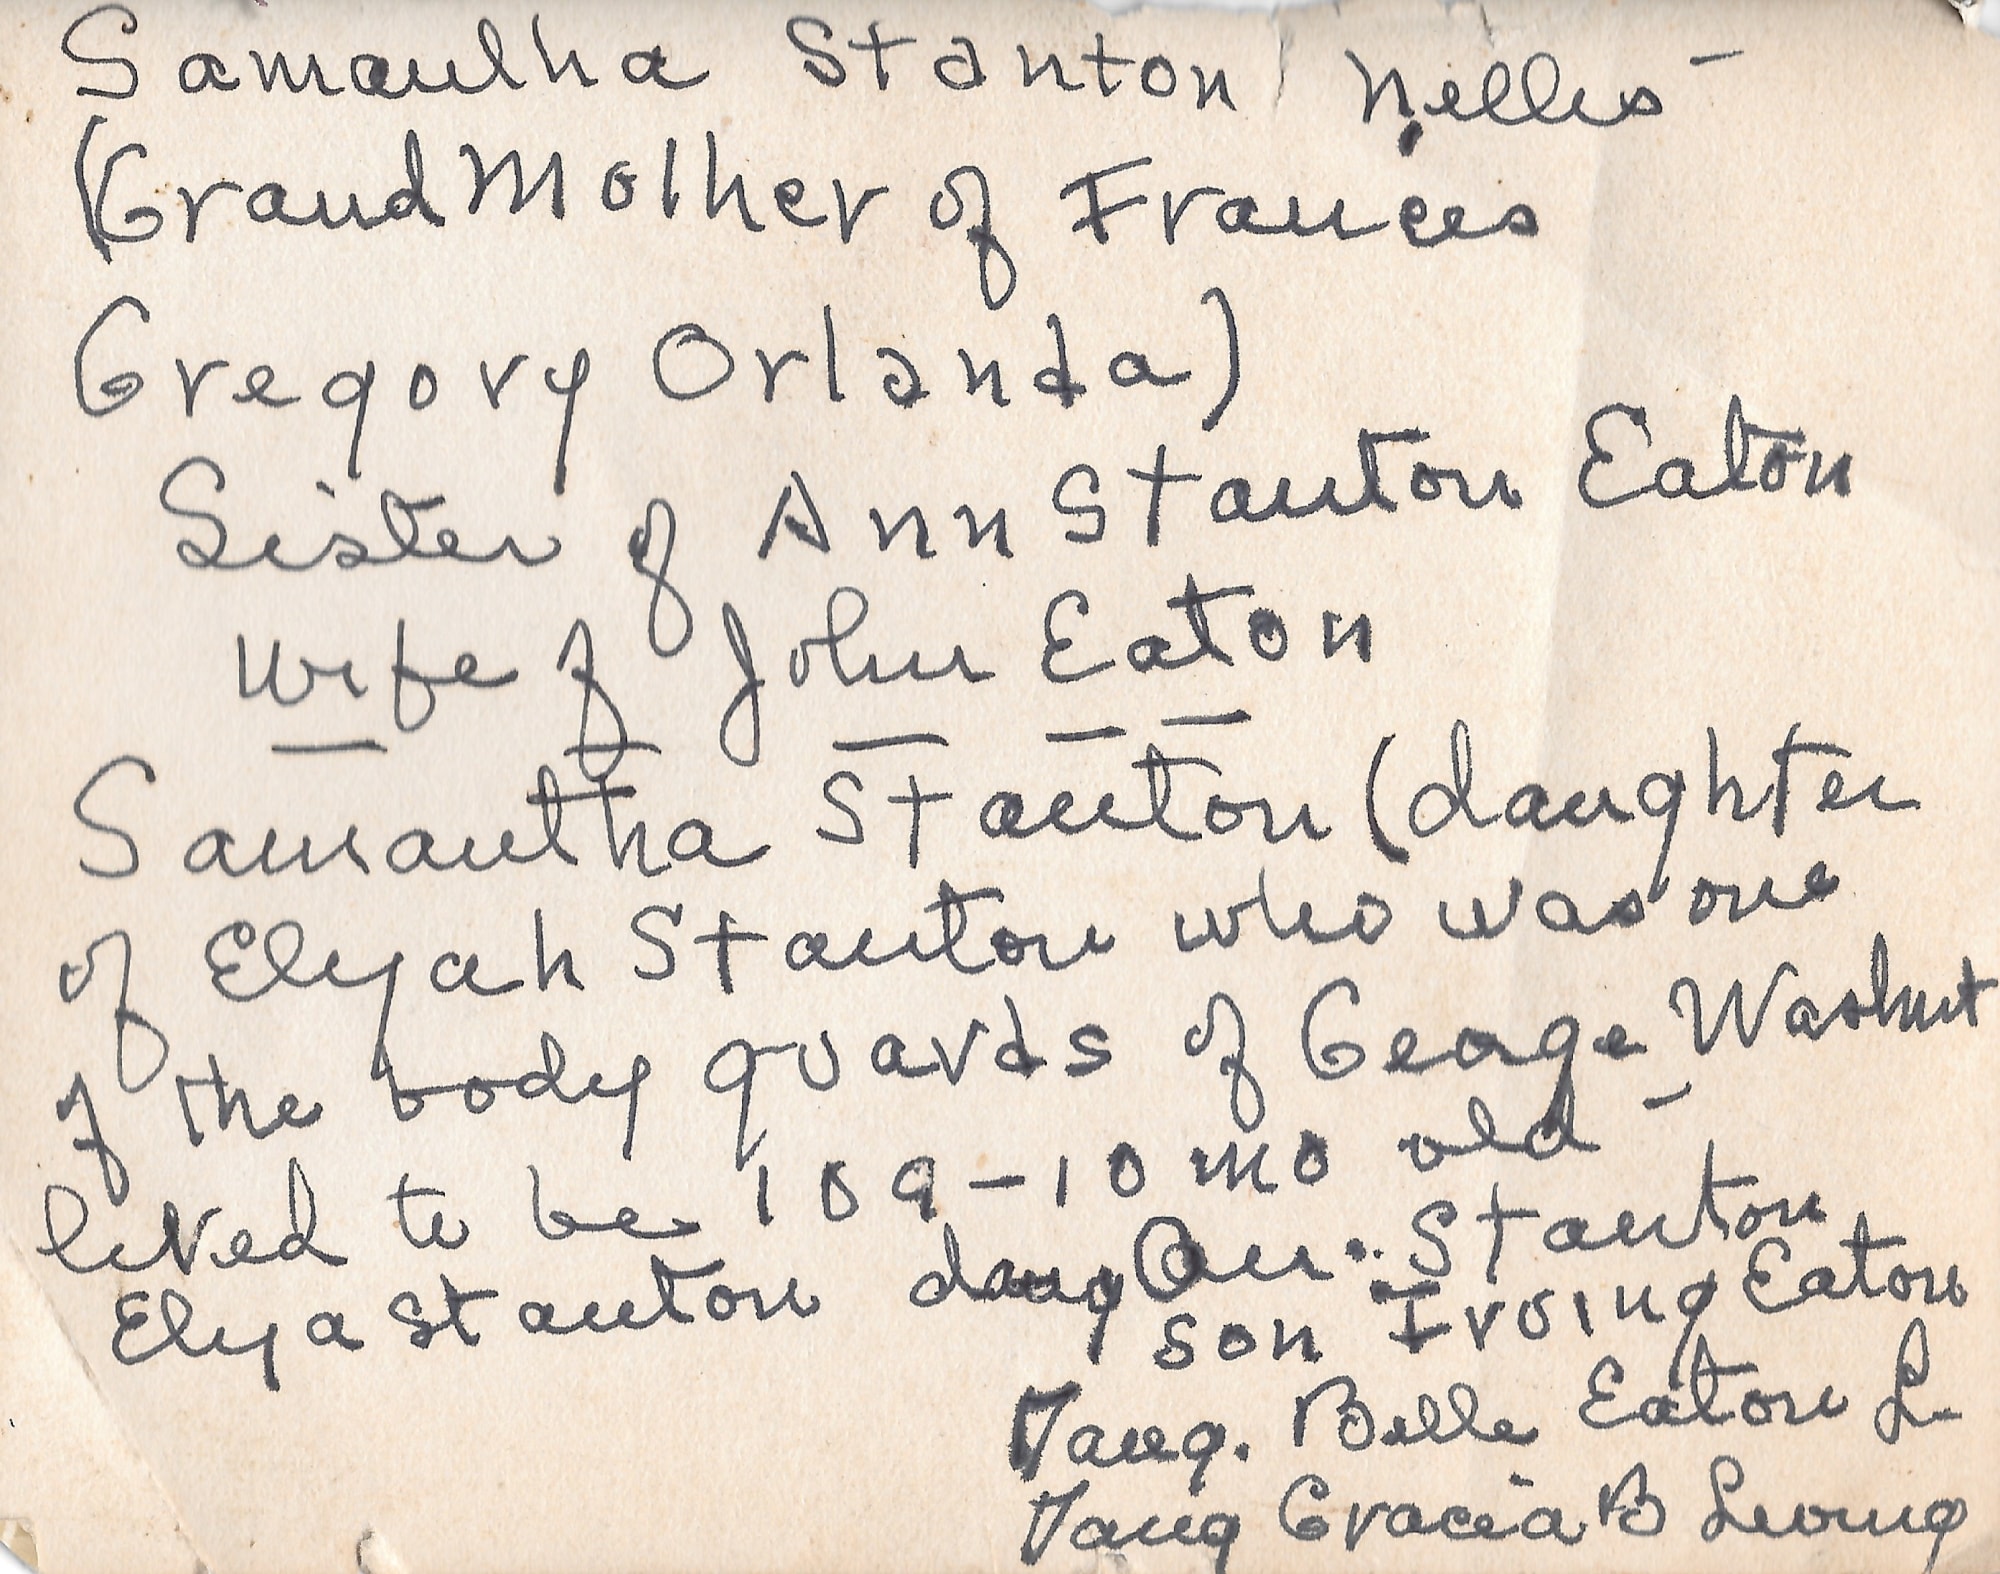 Samantha Stanton Nellis -
(Grand Mother of Frances
Gregory Orlanda)
Sister of Ann Stanton Eaton
wife of John Eaton
Samantha Stanton (daughter
of Elijah Stanton who was one
of the body guards of George Washut
lived to be 109-10 mo old -
Elija Stanton daug Ann Stanton
son Irving Eaton
Daug. Belle Eaton L.
Daug Gracia B